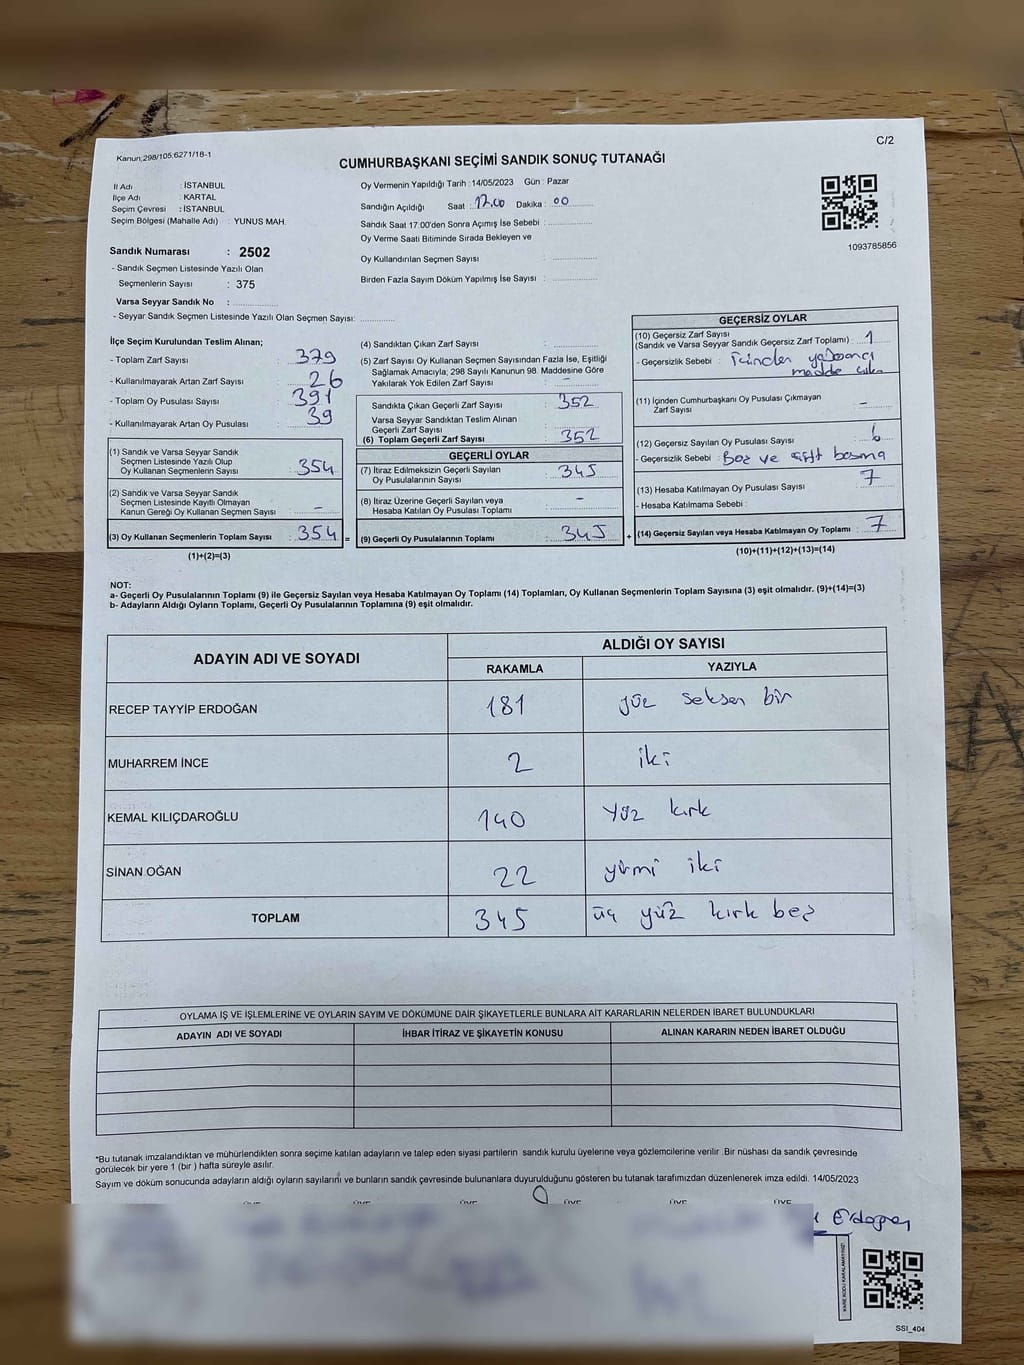 Kanun;298/105;6271/18-1
C/2
CUMHURBAŞKANI SEÇİMİ SANDIK SONUÇ TUTANAĞI
İl Adı : İSTANBUL
İlçe Adı : KARTAL
Seçim Çevresi : İSTANBUL
Seçim Bölgesi (Mahalle Adı) : YUNUS MAH.
Sandık Numarası : 2502
- Sandık Seçmen Listesinde Yazılı Olan
Seçmenlerin Sayısı : 375
Varsa Seyyar Sandık No :
- Seyyar Sandık Seçmen Listesinde Yazılı Olan Seçmen Sayısı:
Oy Vermenin Yapıldığı Tarih :14/05/2023 Gün : Pazar
Sandığın Açıldığı Saat : 17.00 Dakika : 00
Sandık Saat 17:00'den Sonra Açımış İse Sebebi :
Oy Verme Saati Bitiminde Sırada Bekleyen ve
Oy Kullandırılan Seçmen Sayısı :
Birden Fazla Sayım Döküm Yapılmış İse Sayısı :
1093785856
İlçe Seçim Kurulundan Teslim Alınan;
- Toplam Zarf Sayısı : 379
- Kullanılmayarak Artan Zarf Sayısı : 26
- Toplam Oy Pusulası Sayısı : 391
- Kullanılmayarak Artan Oy Pusulası : 39
(1) Sandık ve Varsa Seyyar Sandık
Seçmen Listesinde Yazılı Olup
Oy Kullanan Seçmenlerin Sayısı : 354
(2) Sandık ve Varsa Seyyar Sandık
Seçmen Listesinde Kayıtlı Olmayan
Kanun Gereği Oy Kullanan Seçmen Sayısı : -
(3) Oy Kullanan Seçmenlerin Toplam Sayısı : 354 =
(1)+(2)=(3)
(4) Sandıktan Çıkan Zarf Sayısı :
(5) Zarf Sayısı Oy Kullanan Seçmen Sayısından Fazla İse, Eşitliği
Sağlamak Amacıyla; 298 Sayılı Kanunun 98. Maddesine Göre
Yakılarak Yok Edilen Zarf Sayısı : -
Sandıkta Çıkan Geçerli Zarf Sayısı : 352
Varsa Seyyar Sandıktan Teslim Alınan
Geçerli Zarf Sayısı :
(6) Toplam Geçerli Zarf Sayısı : 352
GEÇERLİ OYLAR
(7) İtiraz Edilmeksizin Geçerli Sayılan
Oy Pusulalarının Sayısı : 345
(8) İtiraz Üzerine Geçerli Sayılan veya
Hesaba Katılan Oy Pusulası Toplamı : -
(9) Geçerli Oy Pusulalarının Toplamı : 345 +
GEÇERSİZ OYLAR
(10) Geçersiz Zarf Sayısı
(Sandık ve Varsa Seyyar Sandık Geçersiz Zarf Toplamı) : 1
- Geçersizlik Sebebi : içinden yabancı
madde
(11) İçinden Cumhurbaşkanı Oy Pusulası Çıkmayan
Zarf Sayısı : -
(12) Geçersiz Sayılan Oy Pusulası Sayısı : 6
- Geçersizlik Sebebi : Boş ve çift basma
(13) Hesaba Katılmayan Oy Pusulası Sayısı : 7
- Hesaba Katılmama Sebebi :
(14) Geçersiz Sayılan veya Hesaba Katılmayan Oy Toplamı : 7
(10)+(11)+(12)+(13)=(14)
NOT:
a- Geçerli Oy Pusulalarının Toplamı (9) ile Geçersiz Sayılan veya Hesaba Katılmayan Oy Toplamı (14) Toplamları, Oy Kullanan Seçmenlerin Toplam Sayısına (3) eşit olmalıdır. (9)+(14)=(3)
b- Adayların Aldığı Oyların Toplamı, Geçerli Oy Pusulalarının Toplamına (9) eşit olmalıdır.
ADAYIN ADI VE SOYADI ALDIĞI OY SAYISI
RAKAMLA YAZIYLA
RECEP TAYYİP ERDOĞAN 181 yüz seksen bir
MUHARREM İNCE 2 iki
KEMAL KILIÇDAROĞLU 140 yüz kırk
SİNAN OĞAN 22 yirmi iki
TOPLAM 345 üç yüz kırk beş
OYLAMA İŞ VE İŞLEMLERİNE VE OYLARIN SAYIM VE DÖKÜMÜNE DAİR ŞİKAYETLERLE BUNLARA AİT KARARLARIN NELERDEN İBARET BULUNDUKLARI
ADAYIN ADI VE SOYADI İHBAR İTİRAZ VE ŞİKAYETİN KONUSU ALINAN KARARIN NEDEN İBARET OLDUĞU
*Bu tutanak imzalandıktan ve mühürlendikten sonra seçime katılan adayların ve talep eden siyasi partilerin sandık kurulu üyelerine veya gözlemcilerine verilir .Bir nüshası da sandık çevresinde
görülecek bir yere 1 (bir ) hafta süreyle asılır.
Sayım ve döküm sonucunda adayların aldığı oyların sayılarını ve bunların sandık çevresinde bulunanlara duyurulduğunu gösteren bu tutanak tarafımızdan düzenlenerek imza edildi. 14/05/2023
ÜYE ÜYE ÜYE ÜYE ÜYE
Erdogan
KARE KODU KARALAMAYINIZ!
SSI_404